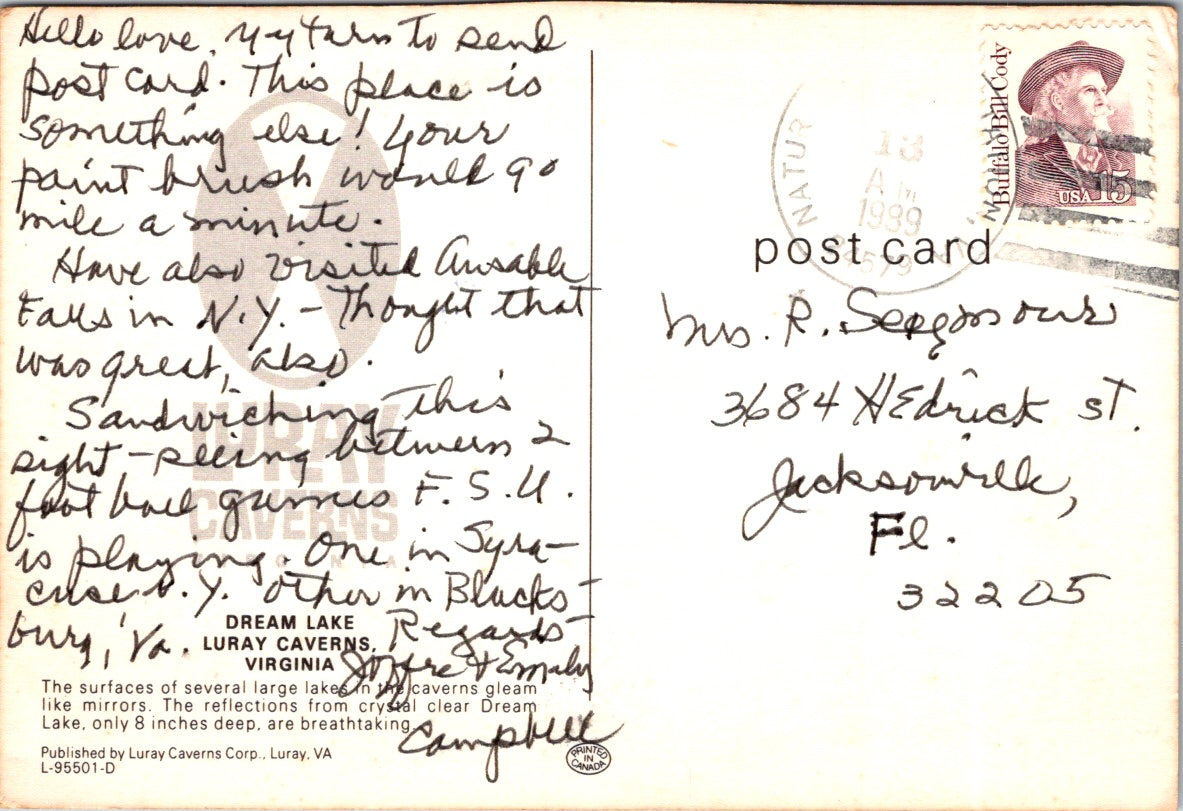 Hello love, my turn to send
post card. This place is
something else! Your
paint brush would go
mile a minute.
Have also visited Ausable
Falls in N.Y. - Thought that
was great, also.
Sandwiching this
sight-seeing between 2
foot ball games F.S.U.
is playing. One in Syra-
cuse N.Y. other in Blacks-
burg, Va. Regards-
Joffre & Emaly
Campbell
LURAY
CAVERNS
DREAM LAKE
LURAY CAVERNS,
VIRGINIA
The surfaces of several large lakes in the caverns gleam
like mirrors. The reflections from crystal clear Dream
Lake, only 8 inches deep, are breathtaking.
Published by Luray Caverns Corp., Luray, VA
L-95501-D
PRINTED
IN
CANADA
post card
NATUR
13
AM
1989
24579
Buffalo Bill Cody
USA 15
Mrs. R. Seymour
3684 HEdrick st.
Jacksonville,
Fl.
32205